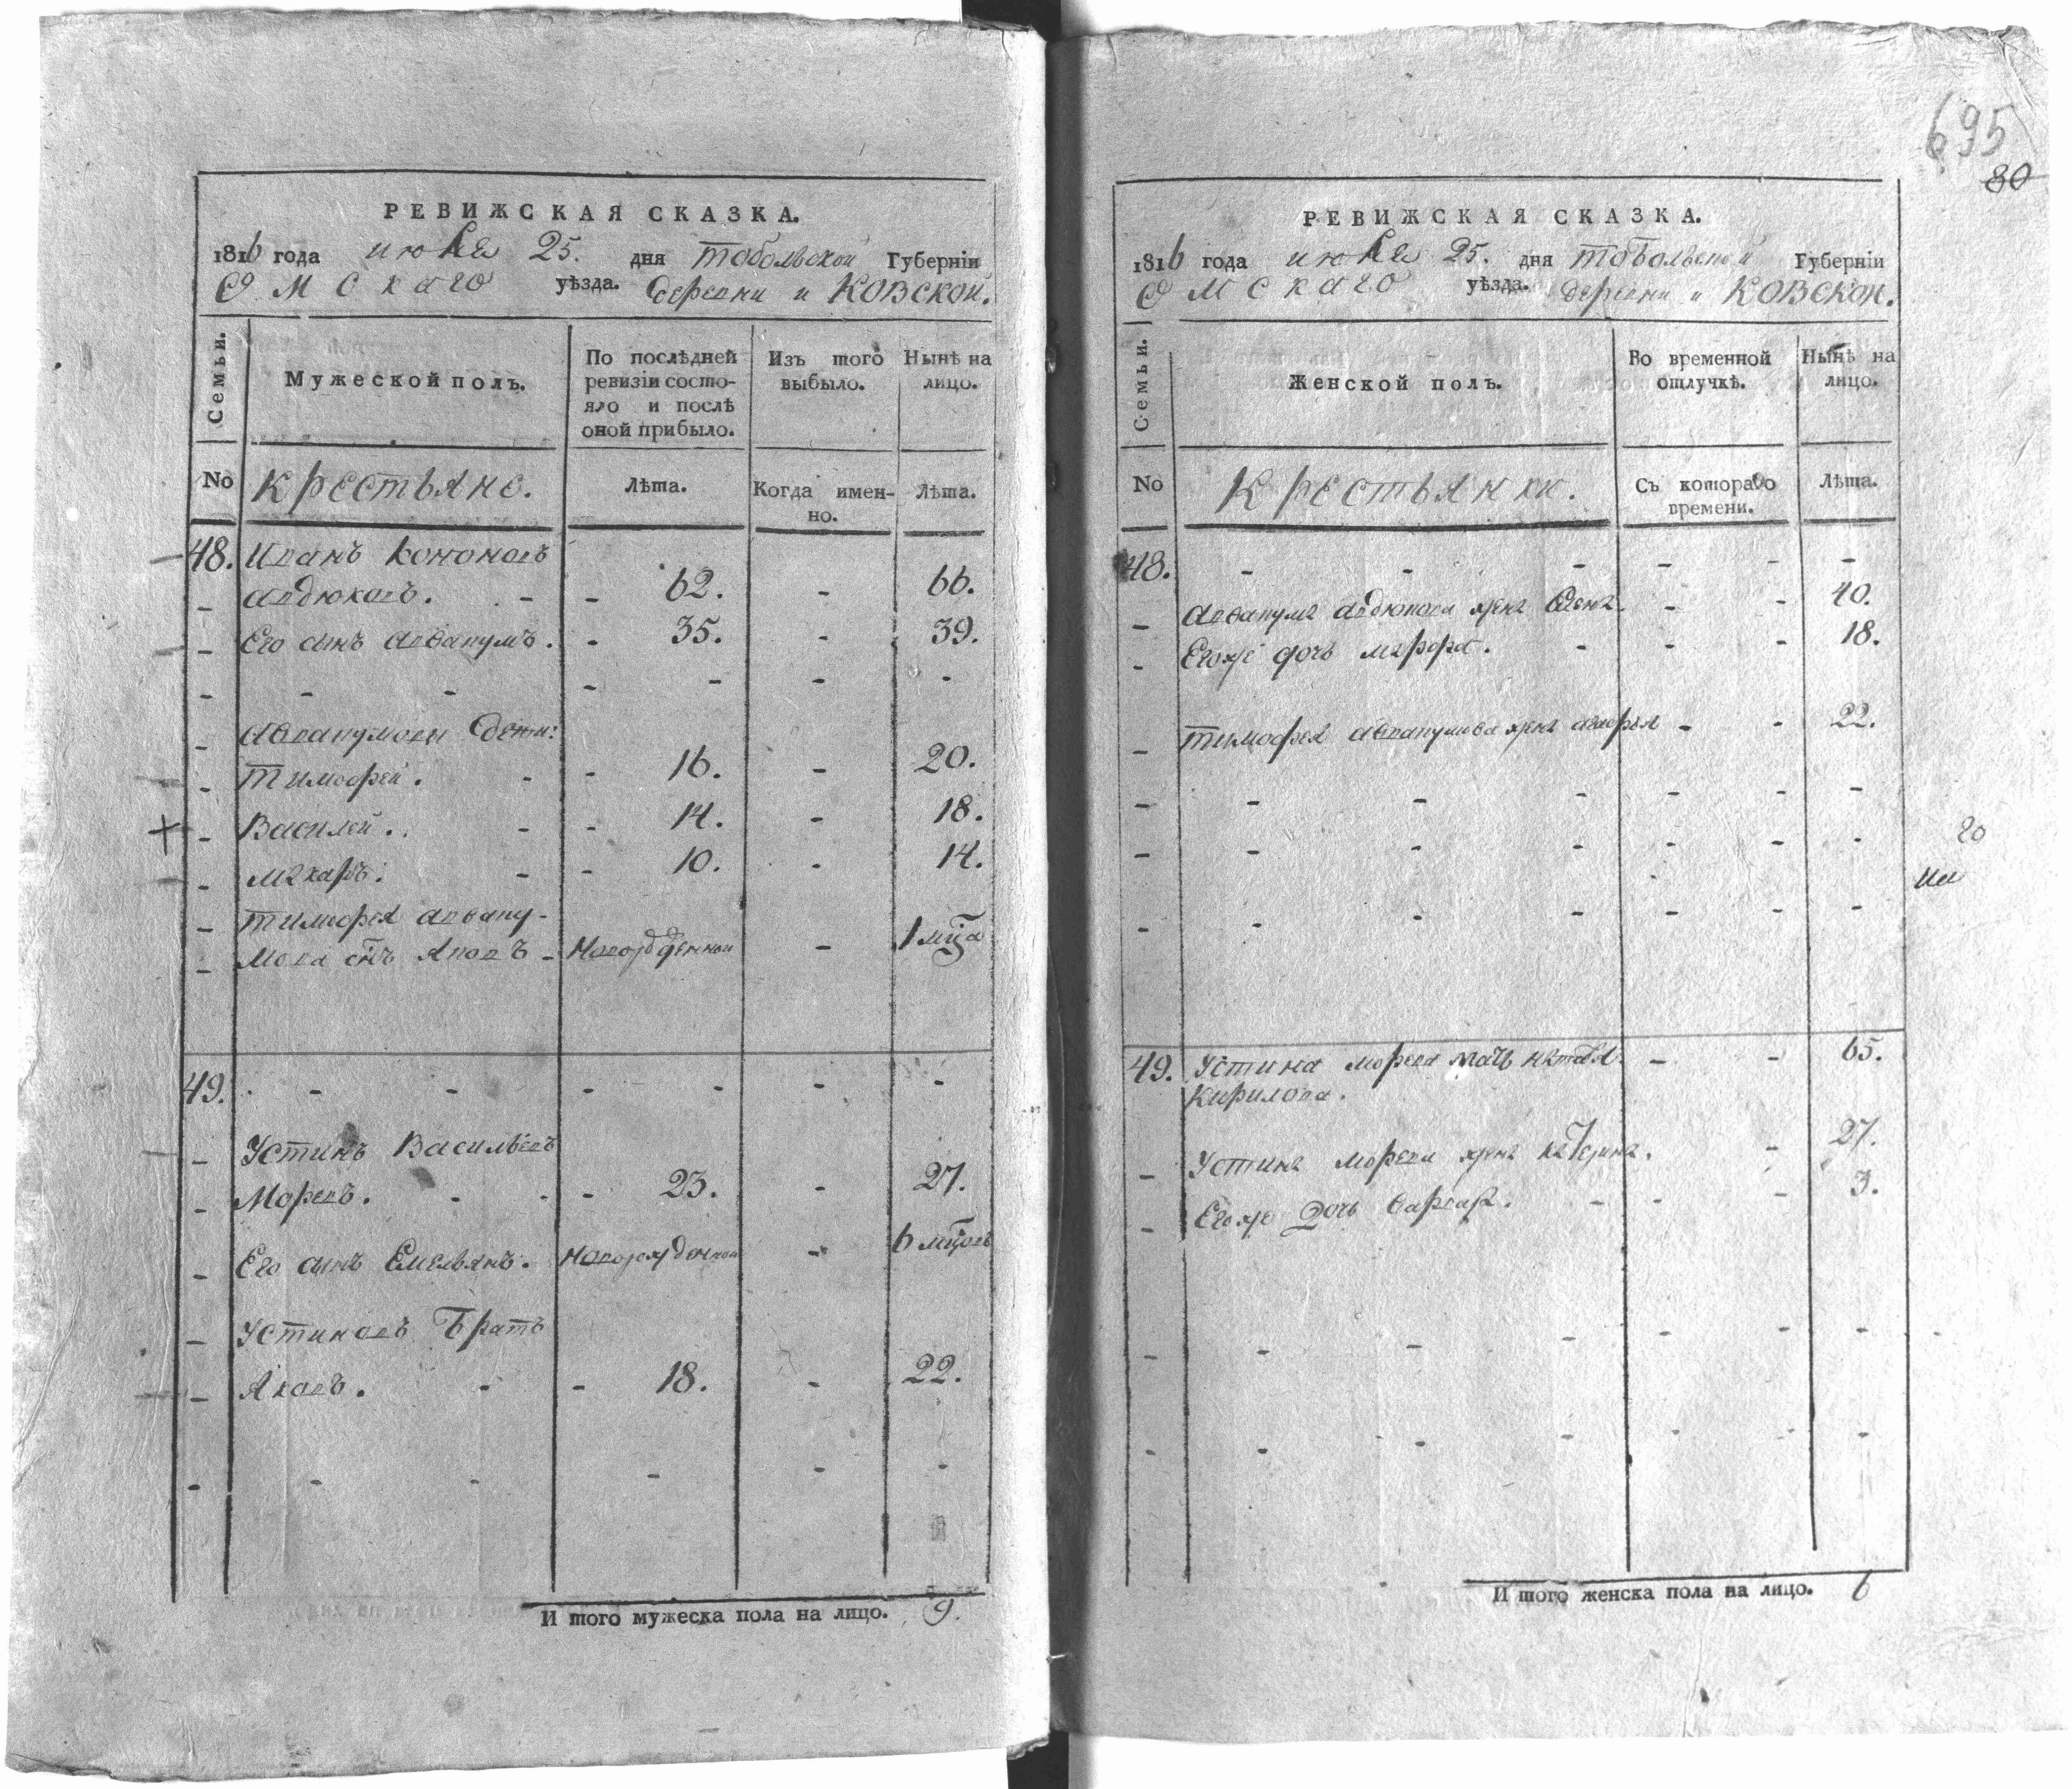 РЕВИЖСКАЯ СКАЗКА.
1816 года июня 25. дня тобольской Губерніи
Омскаго уѣзда. деревни иковской.
Семьи.
Мужеской полъ.
По послѣдней ревизіи состо-
яло и послѣ
оной прибыло.
Изъ того выбыло.
Нынѣ на лицо.
No крестьяне. Лѣта. Когда имен-
но.
Лѣта.
48. Иванъ кононовъ
авдюковъ. - - 62. - 66.
Его сынъ аввакумъ. - 35. - 39.
- - - - - - -
аввакумовы дети:
тимофей. - - 16. - 20.
Василей. - - 14. - 18.
макаръ. - - 10. - 14.
тимофея авваку-
мова сынъ Яковъ - новорожденной - 1 мца
49. - - - - - -
Устинъ Васильевъ
Моревъ. - - - 23. - 27.
Его сынъ Емельянъ. новорожденной - 6 мцовъ
Устиновъ братъ
Яковъ. - - 18. - 22.
- - - - - -
И того мужеска пола на лицо. 9.
695
80
РЕВИЖСКАЯ СКАЗКА.
1816 года июня 25. дня тобольской Губерніи
Омскаго уѣзда. деревни иковской.
Семьи.
Женской полъ.
Во временной отлучкѣ.
Нынѣ на лицо.
No Крестьянки. Съ котораго времени. Лѣта.
48. - - - - - -
аввакума авдюкова жена - - 40.
Егоже дочь марфа. - - - 18.
тимофея аввакумова жена - - 22.
- - - - - -
- - - - - -
- - - - - -
49. Устина морева мать наталья - - 65.
Кирилова.
Устина морева жена катерина. - 27.
Егоже дочь варвара. - - - 3.
- - - - - -
- - - - - -
И того женска пола на лицо. 6